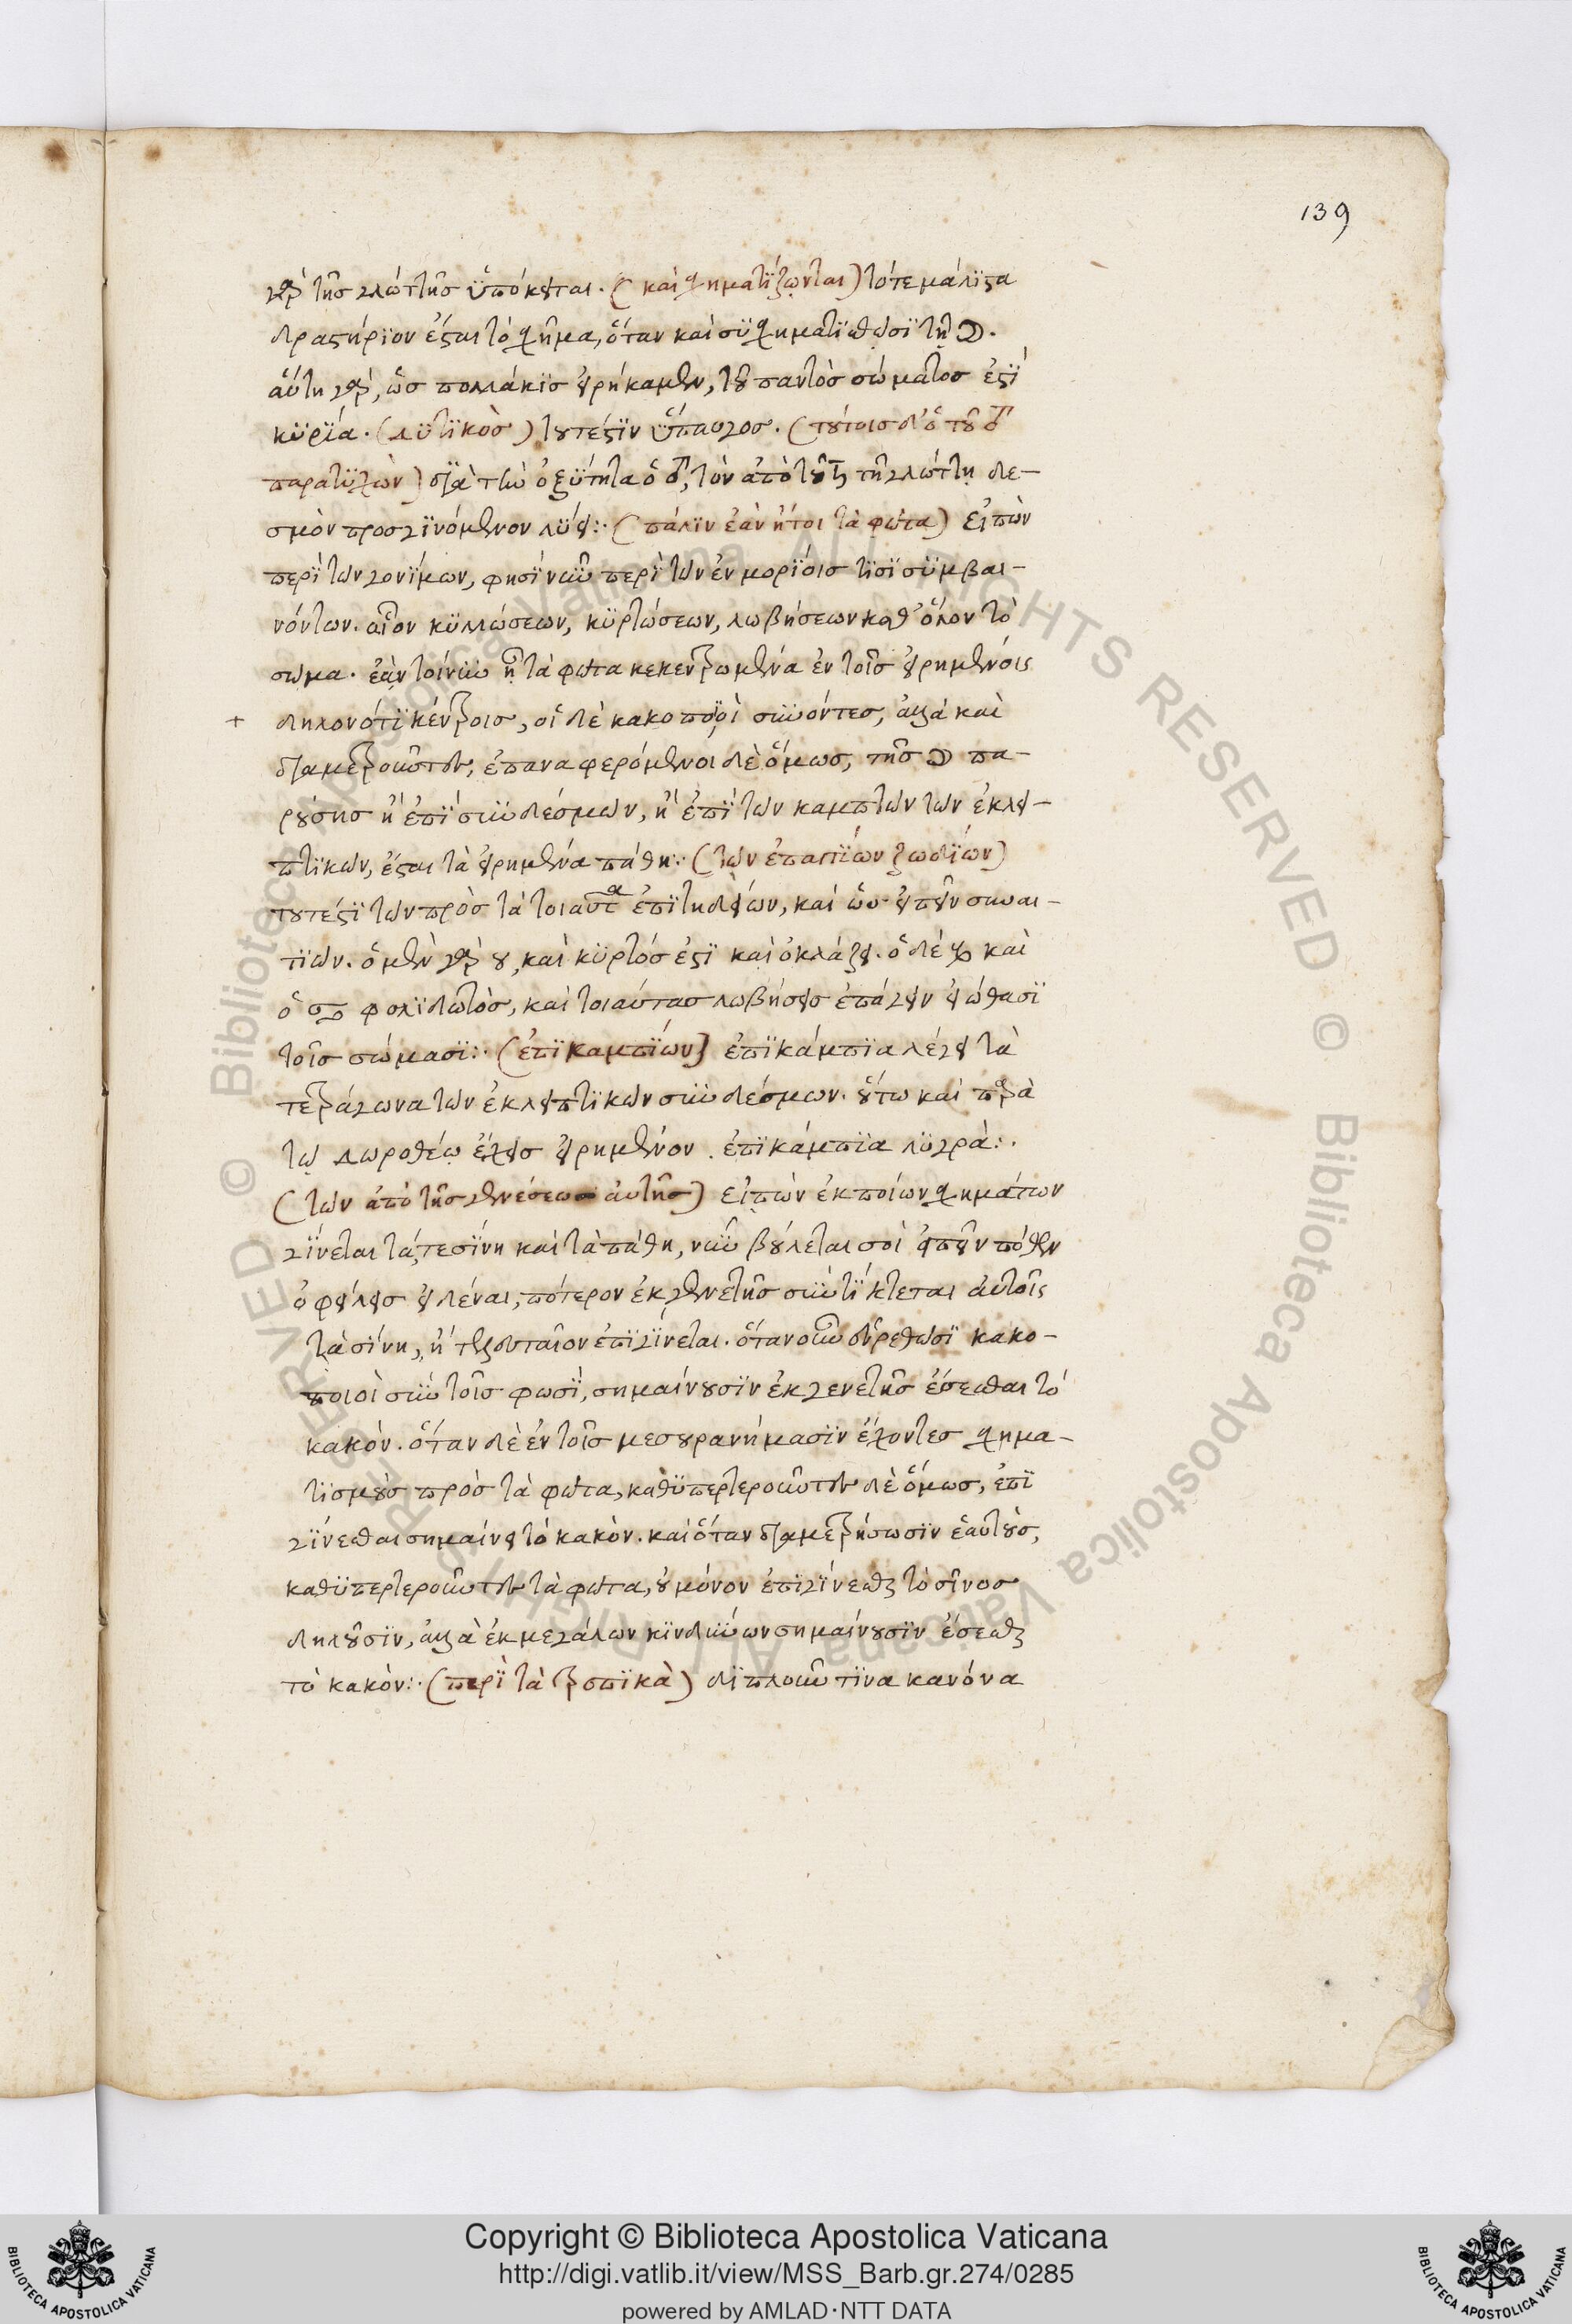 139
γὰρ τῆς γλώττης ὑπόκειται. (καὶ σχηματίζωνται) τότε μάλιστα
δραστήριον ἔσται τὸ σχῆμα, ὅταν καὶ συσχηματισθῶσι τῇ ☽.
αὕτη γὰρ, ὡς πολλάκις εἰρήκαμεν, τοῦ παντὸς σώματος ἐστὶ
κυρία. (δυτικὸς) τουτέστιν ὕπαυγος. (τούτοις δ' ὁ τοῦ ♂
παρατυχὼν) διὰ τὴν ὀξύτητα ὁ ♂, τὸν ἀπὸ τοῦ ♄ τῇ γλώττῃ δε-
σμὸν προσγινόμενον λύει:· (πάλιν ἐὰν ἤτοι τὰ φῶτα) εἰπὼν
περὶ τῶν γονίμων, φησὶ νῦν περὶ τῶν ἐν μορίοις τισὶ συμβαι-
νόντων. οἷον κυλλώσεων, κυρτώσεων, λωβήσεων καθ' ὅλον τὸ
σῶμα. ἐὰν τοίνυν ᾖ τὰ φῶτα κεκεντρωμένα ἐν τοῖς εἰρημένοις
+ δηλονότι κέντροις, οἱ δὲ κακοποιοὶ συνόντες, ἀλλὰ καὶ
διαμετροῦντες, ἐπαναφερόμενοι δὲ ὅμως, τῆς ☽ πα-
ρούσης ἢ ἐπὶ συνδέσμων, ἢ ἐπὶ τῶν καμπτῶν τῶν ἐκλει-
πτικῶν, ἔσται τὰ εἰρημένα πάθη:· (τῶν ἐπαιτίων ζωδίων)
τουτέστι τῶν πρὸς τὰ τοιαῦτα ἐπιτηδείων, καὶ ὡς εἰπεῖν συναι-
τίων. ὁ μὲν γὰρ ♉, καὶ κυρτός ἐστι καὶ ὀκλάζει. ὁ δὲ ♑ καὶ
ὁ ♋ φολιδωτὸς, καὶ τοιαύτας λωβήσεις ἐπάγειν εἰώθασι
τοῖς σώμασι:· (ἐπικαμπίων) ἐπικάμπια λέγει τὰ
τετράγωνα τῶν ἐκλειπτικῶν συνδέσμων. οὕτω καὶ παρὰ
τῷ Δωροθέῳ ἔχεις εἰρημένον. ἐπικάμπια λυγρὰ:·
(τῶν ἀπὸ τῆς γενέσεως αὐτῆς) εἰπὼν ἐκ ποίων σχημάτων
γίνεται τά τε σίνη καὶ τὰ πάθη, νῦν βούλεταί σοι εἰπεῖν πόθεν
ὀφείλεις εἰδέναι, πότερον ἐκ γενετῆς συντίκτεται αὐτοῖς
τὰ σίνη, ἢ ἐξ ὑστέρου ἐπιγίνεται. ὅταν οὖν εὑρεθῶσι κακο-
ποιοὶ σὺν τοῖς φωσὶ, σημαίνουσιν ἐκ γενετῆς ἔσεσθαι τὸ
κακόν. ὅταν δὲ ἐν τοῖς μεσουρανήμασιν ἔχοντες σχημα-
τισμοὺς πρὸς τὰ φῶτα, καθυπερτεροῦντες δὲ ὅμως, ἐπι
γίνεσθαι σημαίνει τὸ κακόν. καὶ ὅταν διαμετρήσωσιν ἑαυτοὺς,
καθυπερτεροῦντες τὰ φῶτα, οὐ μόνον ἐπιγίνεσθαι τὸ σῖνος
δηλοῦσιν, ἀλλὰ ἐκ μεγάλων κινδύνων σημαίνουσιν ἔσεσθαι
τὸ κακόν:· (περὶ τὰ τροπικὰ) διπλοῦν τινα κανόνα
Copyright © Biblioteca Apostolica Vaticana
http://digi.vatlib.it/view/MSS_Barb.gr.274/0285
powered by AMLAD·NTT DATA